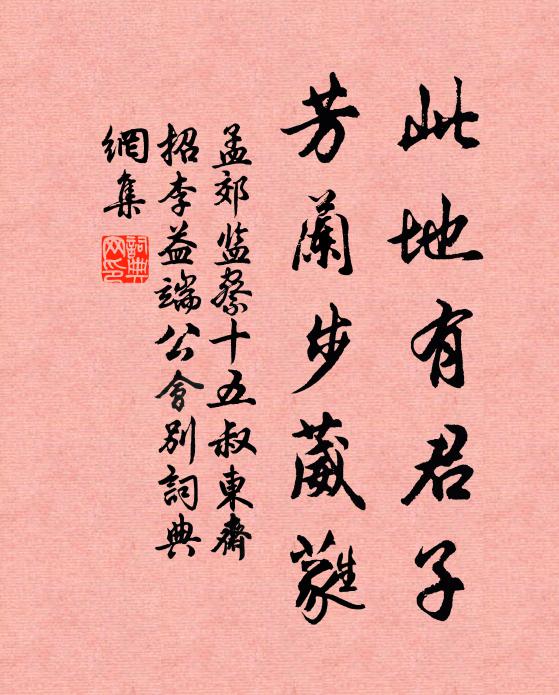 此地有君子
芳蘭步葳蕤
孟郊监察十五叔東齋
招李益端公會別詞典
網集
詞典
网印